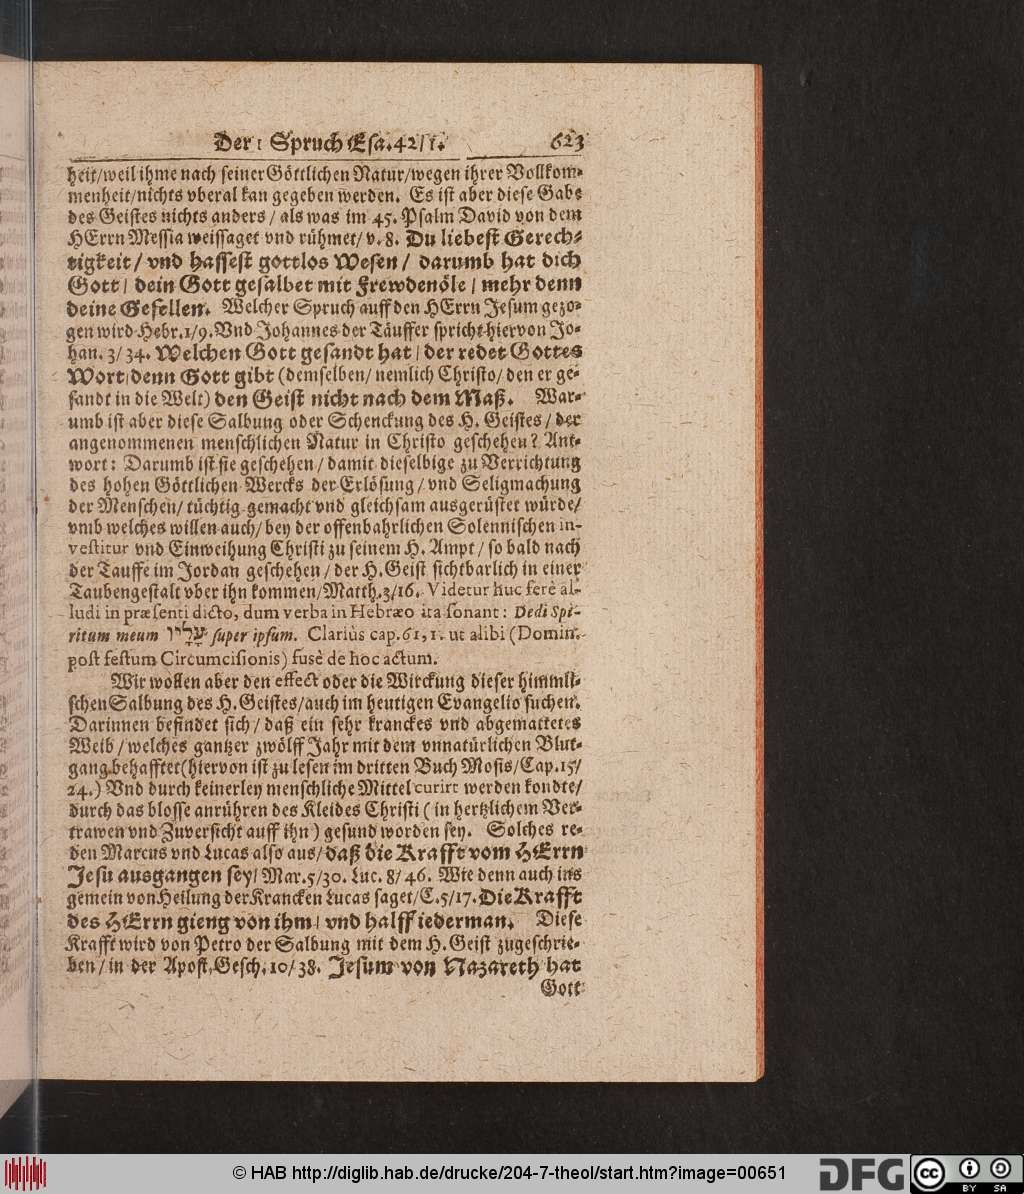 Der: Spruch Esa.42/1. 623
heit/weil ihme nach seiner Göttlichen Natur/wegen ihrer Vollkom-
menheit/nichts vberal kan gegeben werden. Es ist aber diese Gabe
des Geistes nichts anders/ als was im 45. Psalm David von dem
HErrn Messia weissaget vnd rühmet/ v. 8. Du liebest Gerech-
tigkeit/ vnd hassest gottlos Wesen/ darumb hat dich
Gott/ dein Gott gesalbet mit Frewdenöle/ mehr denn
deine Gesellen. Welcher Spruch auff den HErrn Jesum gezo-
gen wird Hebr.1/9. Vnd Johannes der Täuffer spricht hiervon Jo-
han. 3/ 34. Welchen Gott gesandt hat/ der redet Gottes
Wort/denn Gott gibt (demselben/ nemlich Christo/ den er ge-
sandt in die Welt) den Geist nicht nach dem Maß. War-
umb ist aber diese Salbung oder Schenckung des H. Geistes/ der
angenommenen menschlichen Natur in Christo geschehen? Ant-
wort: Darumb ist sie geschehen/ damit dieselbige zu Verrichtung
des hohen Göttlichen Wercks der Erlösung/ vnd Seligmachung
der Menschen/ tüchtig gemacht vnd gleichsam ausgerüstet würde/
vmb welches willen auch/ bey der offenbahrlichen Solennischen in-
vestitur vnd Einweihung Christi zu seinem H. Ampt/ so bald nach
der Tauffe im Jordan geschehen/ der H. Geist sichtbarlich in einer
Taubengestalt vber ihn kommen/Matth.3/16. Videtur huc ferè al-
ludi in præsenti dicto, dum verba in Hebræo ita sonant: Dedi Spi-
ritum meum עָלָיו super ipsum. Clariùs cap.61,1. ut alibi (Domin.
post festum Circumcisionis) fusè de hoc actum.
Wir wollen aber den effect oder die Wirckung dieser himmli-
schen Salbung des H. Geistes/auch im heutigen Evangelio suchen.
Darinnen befindet sich/ daß ein sehr kranckes vnd abgemattetes
Weib/ welches gantzer zwölff Jahr mit dem vnnatürlichen Blut-
gang behafftet (hiervon ist zu lesen im dritten Buch Mosis/Cap.15/
24.) Vnd durch keinerley menschliche Mittel curirt werden kondte/
durch das blosse anrühren des Kleides Christi (in hertzlichem Ver-
trawen vnd Zuversicht auff ihn) gesund worden sey. Solches re-
den Marcus vnd Lucas also aus/ daß die Krafft vom HErrn
Jesu ausgangen sey/ Mar.5/30. Luc. 8/ 46. Wie denn auch ins
gemein von Heilung der Krancken Lucas saget/C.5/17. Die Krafft
des HErrn gieng von ihm/ vnd halff iederman. Diese
Krafft wird von Petro der Salbung mit dem H. Geist zugeschrie-
ben/ in der Apost. Gesch. 10/ 38. Jesum von Nazareth hat
Gott
© HAB http://diglib.hab.de/drucke/204-7-theol/start.htm?image=00651
DFG
cc BY SA